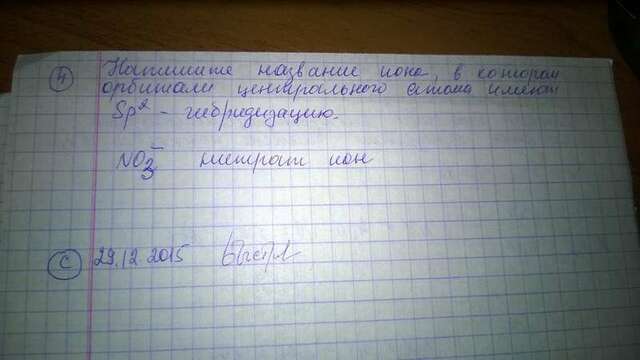 4 Напишите название иона, в котором
орбитали центрального атома имеют
Sp² - гибридизацию.
NO₃⁻ нитрат ион
С 29.12.2015